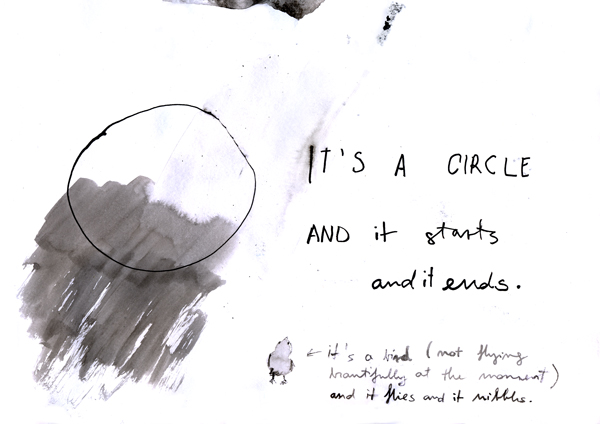 IT'S A CIRCLE
AND it starts
and it ends.
← it's a bird (not flying
beautifully at the moment)
and it flies and it nibbles.